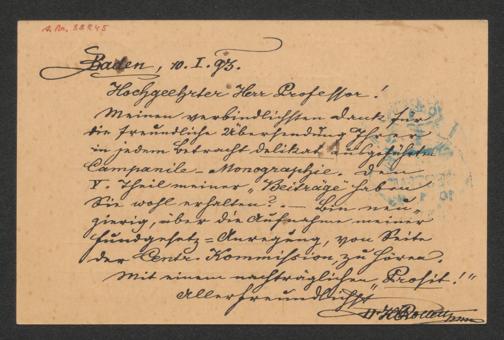 A. Nr. 38845
Baden, 10. I. 95.
Hochgeehrter Herr Professor!
Meinen verbindlichsten Dank für
die freundliche Übersendung Ihrer
in jedem Betracht delikat ausgeführten
Campanile-Monographie. Den
V. Theil meiner „Beiträge haben
Sie wohl erhalten? — Bin neu-
gierig, über die Aufnahme meiner
Fundgesetz=Anregung, von Seite
der Centr. Kommission, zu hören.
Mit einem nachträglichen „Prosit!"
Allerfreundlichst